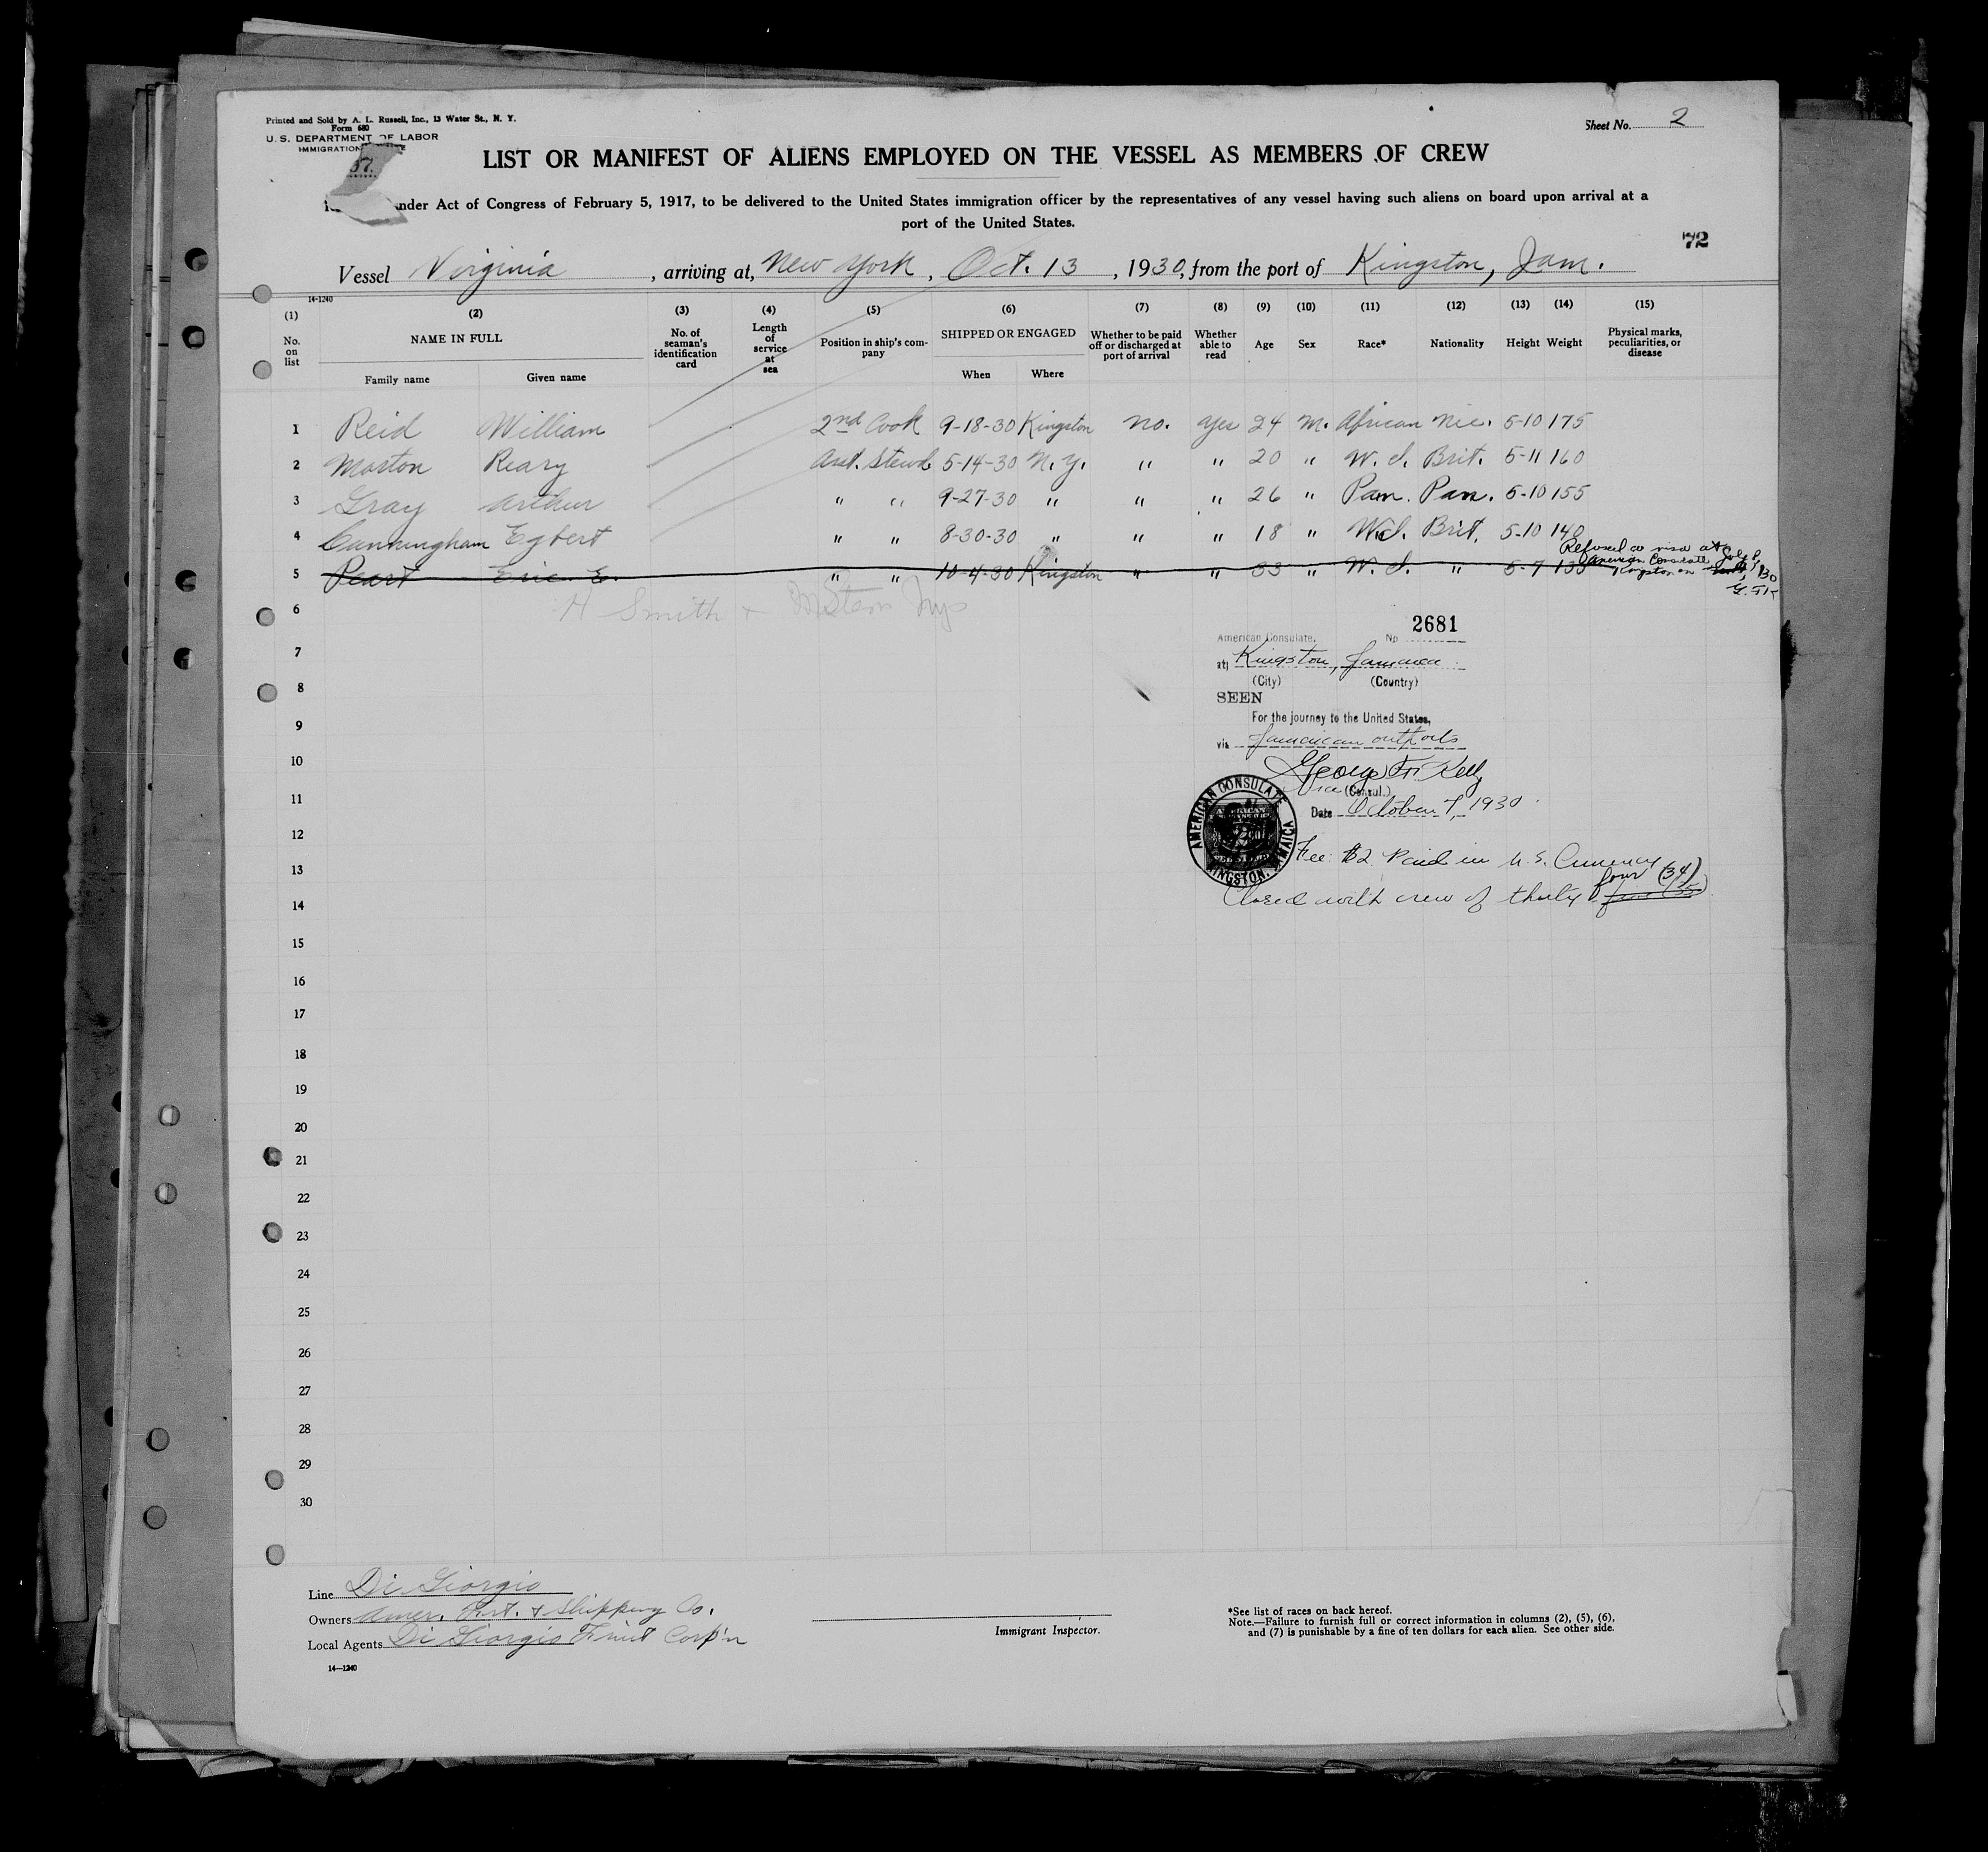 Printed and Sold by A. L. Russell, Inc., 13 Water St., N. Y.
Form 680
U. S. DEPARTMENT OF LABOR
IMMIGRATION
Sheet No. 2
LIST OR MANIFEST OF ALIENS EMPLOYED ON THE VESSEL AS MEMBERS OF CREW
under Act of Congress of February 5, 1917, to be delivered to the United States immigration officer by the representatives of any vessel having such aliens on board upon arrival at a
port of the United States.
72
Vessel Virginia, arriving at, New York, Oct. 13, 1930, from the port of Kingston, Jam.
14-1240
(1) (2) (3) (4) (5) (6) (7) (8) (9) (10) (11) (12) (13) (14) (15)
No. on list NAME IN FULL No. of seaman's identification card Length of service at sea Position in ship's company SHIPPED OR ENGAGED Whether to be paid off or discharged at port of arrival Whether able to read Age Sex Race* Nationality Height Weight Physical marks, peculiarities, or disease
Family name Given name When Where
1 Reid William 2nd Cook 9-18-30 Kingston no. yes 24 M. African Nic. 5-10 175
2 Morton Reary Asst. Stewd. 5-14-30 N.Y. " " 20 " W. I. Brit. 5-11 160
3 Gray Arthur " " 9-27-30 " " " 26 " Pan. Pan. 5-10 155
4 Cunningham Egbert " " 8-30-30 " " " 18 " W. I. Brit. 5-10 140
5 Peart Eric E. " " 10-4-30 Kingston " " 33 " W. I. " 5-7 135
Refused a visa at
American Consulate
Kingston on
6 H Smith
7
8
9
10
11
12
13
14
15
16
17
18
19
20
21
22
23
24
25
26
27
28
29
30
American Consulate. No 2681
at Kingston, Jamaica
(City) (Country)
SEEN
For the journey to the United States,
via Jamaican outports
George Kelly
Vice (Consul.)
Date October 7, 1930
AMERICAN CONSULATE KINGSTON, JAMAICA
Fee: $2 Paid in U. S. Currency
Closed with crew of thirty four (34)
Line Di Giorgio
Owners Amer. Frt. & Shipping Co.
Local Agents Di Giorgio Fruit Corp'n
14—1240
Immigrant Inspector.
*See list of races on back hereof.
Note.—Failure to furnish full or correct information in columns (2), (5), (6),
and (7) is punishable by a fine of ten dollars for each alien. See other side.